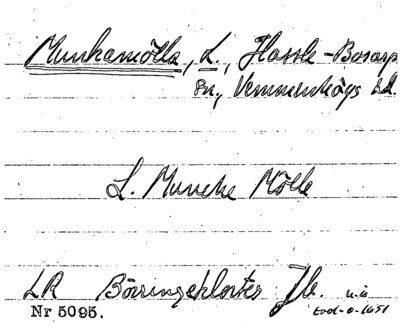 Munkamölla, L., Hassle-Bosarp
sn, Vemmenhögs hd.
L. Muncke Mölle
LR Börringekloster Jb.
Nr 5095.